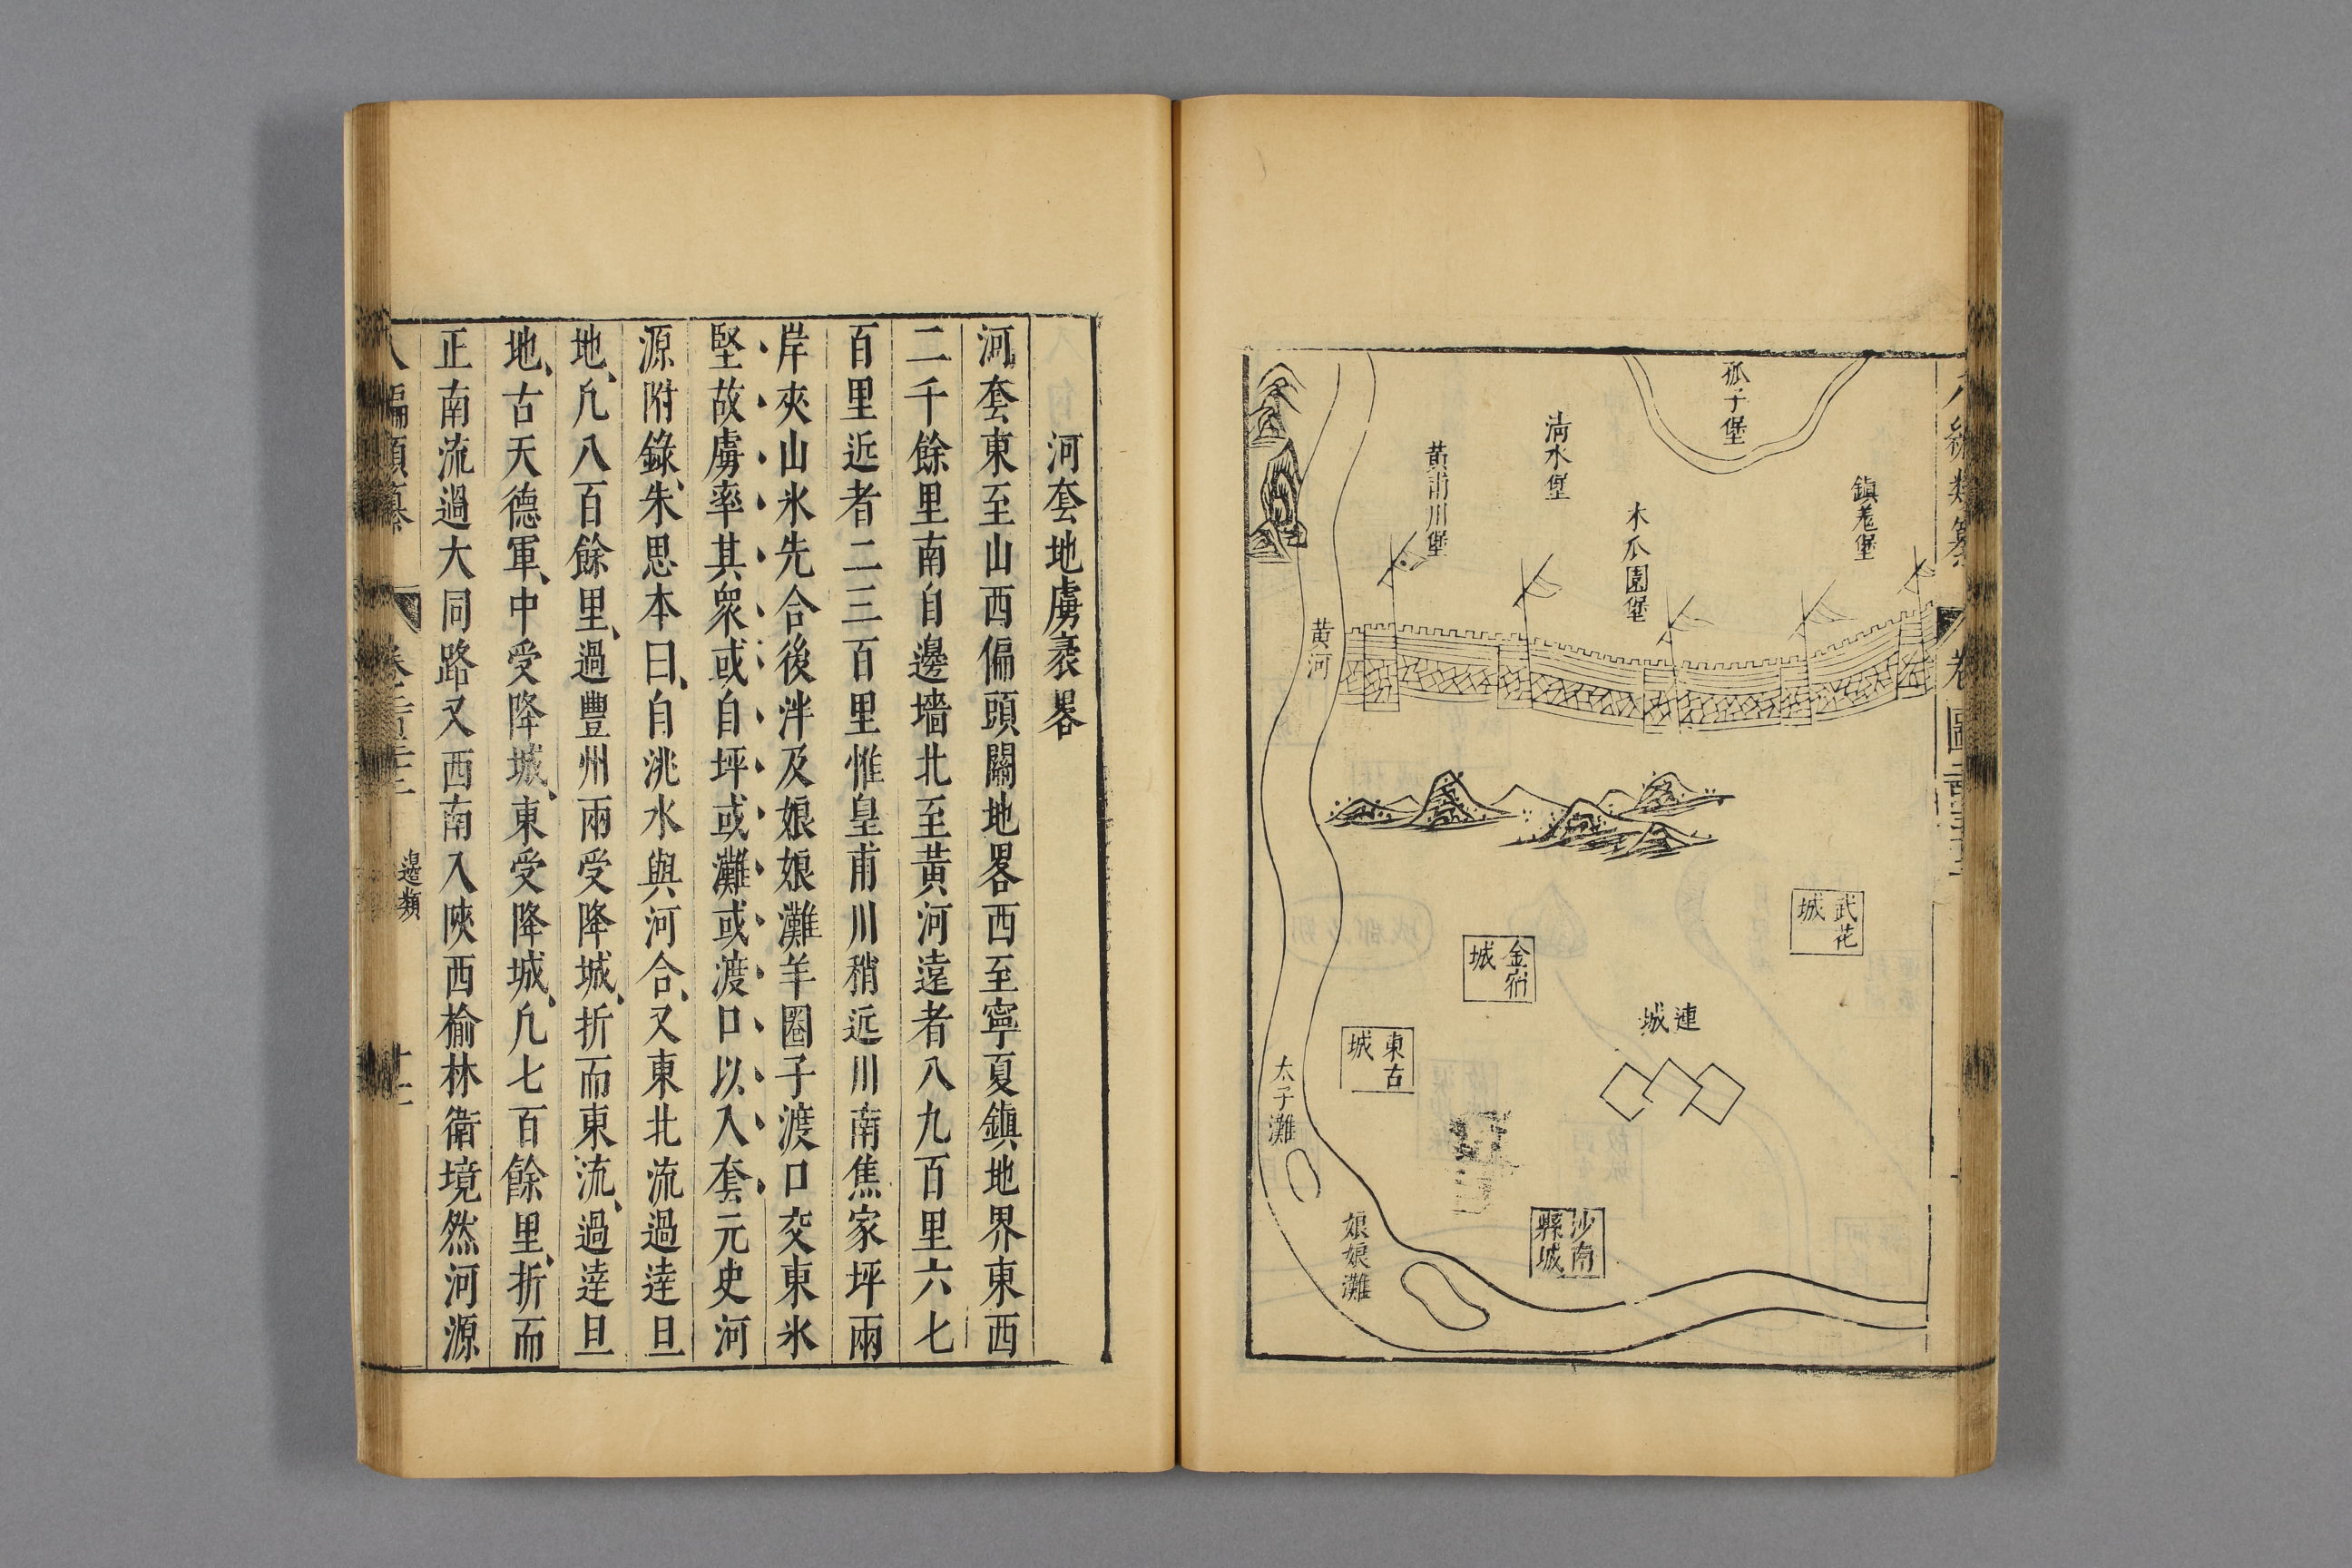 孤子堡
鎮羌堡
清水堡
木瓜園堡
黃甫川堡
黃河
武花城
金宿城
連城
東古城
太子灘
沙南縣城
娘娘灘
河套地虜衺畧
河套東至山西偏頭關地畧西至寧夏鎮地界東西
二千餘里南自邊墻北至黃河遠者八九百里六七
百里近者二三百里惟皇甫川稍近川南焦家坪兩
岸夾山氷先合後泮及娘娘灘羊圈子渡口交東氷
堅故虜率其衆或自坪或灘或渡口以入套元史河
源附錄、朱思本曰、自洮水與河合、又東北流過達旦
地、凢八百餘里、過豐州兩受降城、折而東流、過達旦
地、古天德軍、中受降城、東受降城、凢七百餘里、折而
正南流過大同路又西南入陝西榆林衛境然河源
邊類